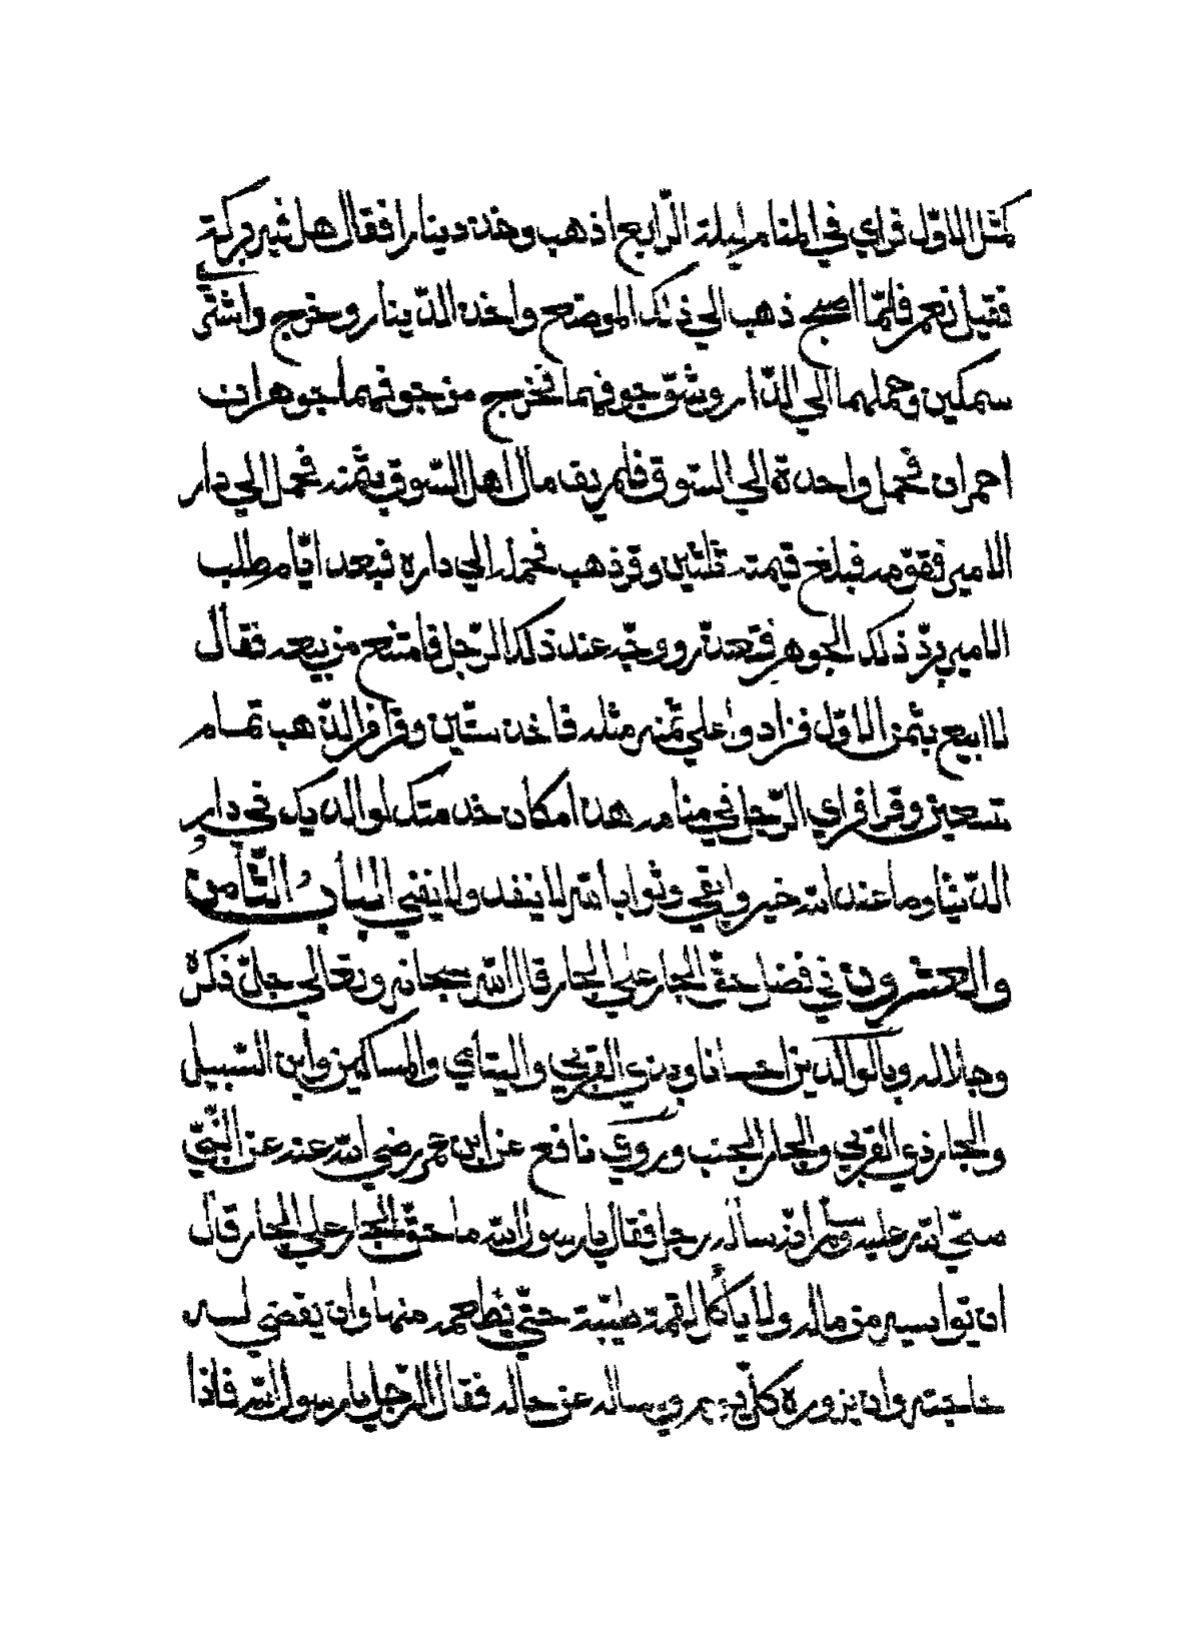 كمثل الاوّل فراي في المنام ليلة الرّابع اذهب وخذ دينارا فقال هل فيه بركة
فقيل نعم فلمّا اصبح ذهب الي ذلك الموضع واخذ الدّينار وخرج واشترى
سمكين وحملهما الي الدّار وشقّ جوفهما فخرج من جوفهما جوهران
احمران فحمل واحدة الي السّوق فلم يف مال اهل السّوق بثمنه فحمل الي دار
الامير فقوّمه فبلغ قيمته ثلثين وقر ذهب فحمله الي داره فبعد ايّام طلب
الامير بردّ ذلك الجوهر فتعذّر ووجّه عند ذلك الرّجل فامتنع من بيعه فقال
لا ابيع بثمن الاوّل فزادوا علي ثمنه مثله فاخذ ستّين وقرا فر الذّهب تمام
تسعين وقرا فراي الرّجل في منامه هذا مكان خدمتك لوالديك في دار
الدّنيا وما عند الله خير وابقي وثواب الله لا ينفد ولا يفني الباب الثّامن
والعشرون في فضل حقّ الجار علي الجار قال الله سبحانه وتعالي جلّ ذكره
وجلاله وبالوالدين احسانا وبذي القربي واليتامي والمساكين وابن السّبيل
والجار ذي القربي والجار الجنب وروي نافع عن ابن عمر رضي الله عنه عن النّبيّ
صلّي الله عليه وسلّم انّه ساله رجل فقال يا رسول الله ما حقّ الجار علي الجار قال
ان يواسيه من ماله ولا يأكل لقمة طيّبة حتّي يطعمه منها وان يقضي لسه
حاجته وان يزوره كلّ يوم ويساله عن حاله فقال الرّجل يا رسول الله فاذا